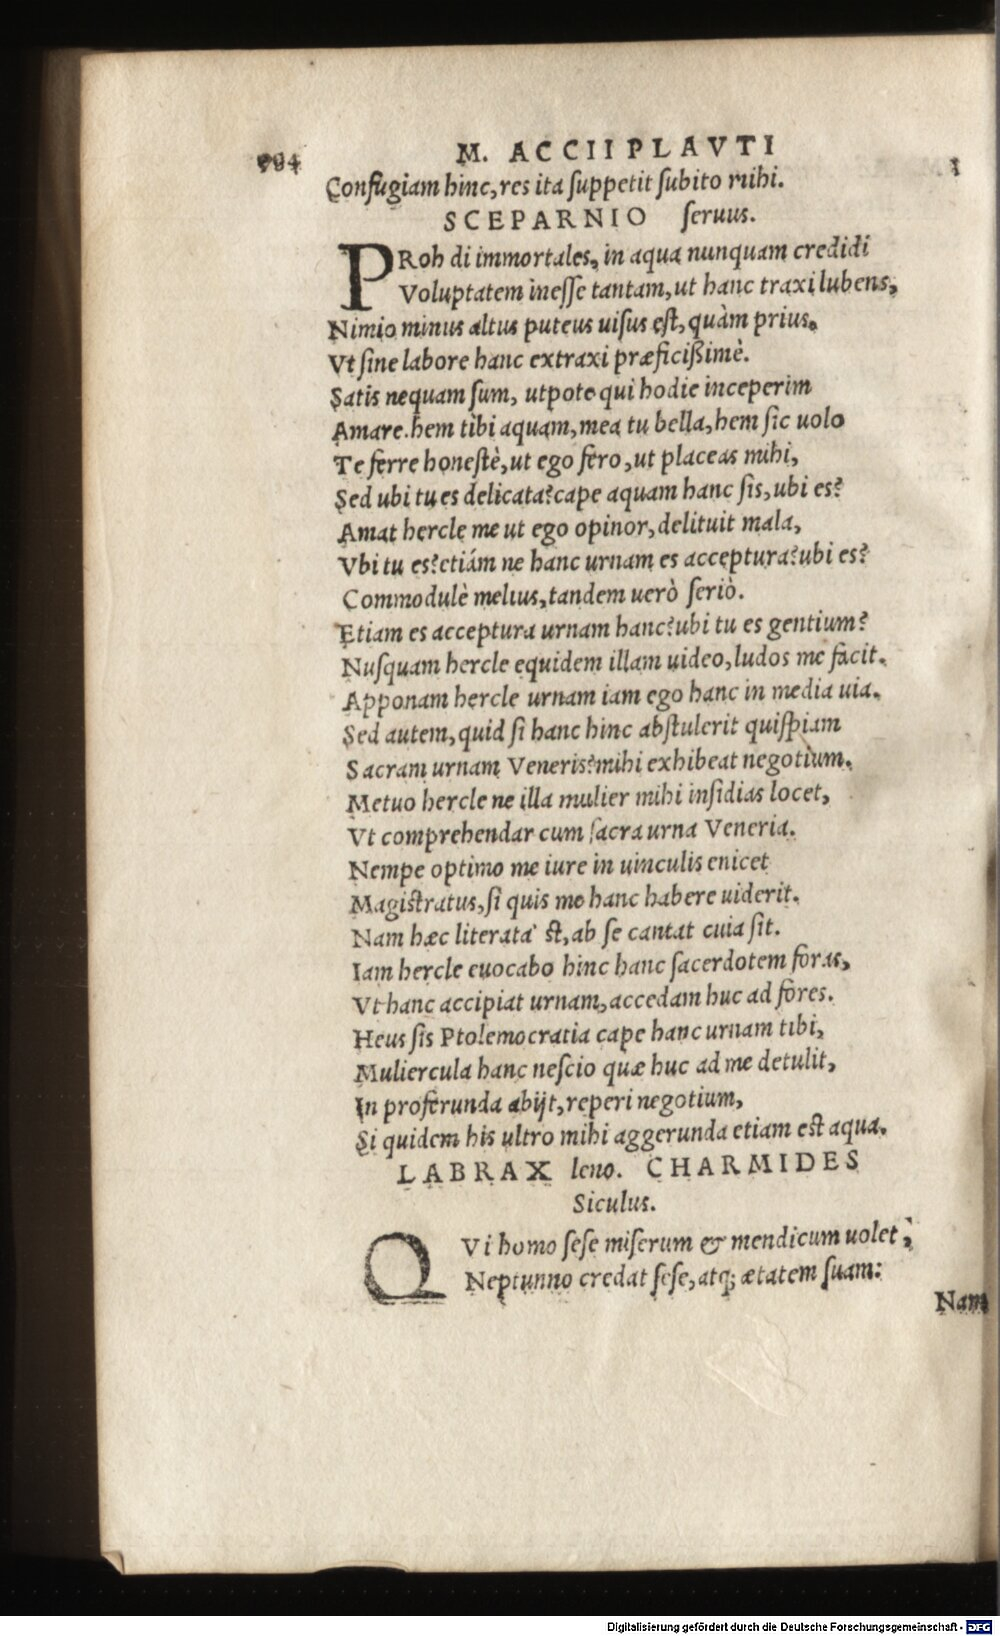 794 M. ACCII PLAVTI
Confugiam hinc, res ita ſuppetit ſubito mihi.
SCEPARNIO ſeruus.
PRoh di immortales, in aqua nunquam credidi
Voluptatem ineſſe tantam, ut hanc traxi lubens,
Nimio minus altus puteus uiſus eſt, quàm prius.
Vt ſine labore hanc extraxi præficiſsimè.
Satis nequam ſum, utpote qui hodie inceperim
Amare. hem tibi aquam, mea tu bella, hem ſic uolo
Te ferre honeſtè, ut ego fero, ut placeas mihi,
Sed ubi tu es delicata? cape aquam hanc ſis, ubi es?
Amat hercle me ut ego opinor, delituit mala,
Vbi tu es? etiám ne hanc urnam es acceptura? ubi es?
Commodulè melius, tandem uerò ſeriò.
Etiam es acceptura urnam hanc? ubi tu es gentium?
Nuſquam hercle equidem illam uideo, ludos me facit.
Apponam hercle urnam iam ego hanc in media uia.
Sed autem, quid ſi hanc hinc abſtulerit quiſpiam
Sacram urnam Veneris? mihi exhibeat negotium.
Metuo hercle ne illa mulier mihi inſidias locet,
Vt comprehendar cum ſacra urna Veneria.
Nempe optimo me iure in uinculis enicet
Magiſtratus, ſi quis me hanc habere uiderit.
Nam hæc literata' ſt, ab ſe cantat cuia ſit.
Iam hercle euocabo hinc hanc ſacerdotem foras,
Vt hanc accipiat urnam, accedam huc ad fores.
Heus ſis Ptolemocratia cape hanc urnam tibi,
Muliercula hanc neſcio quæ huc ad me detulit,
In proferunda abijt, reperi negotium,
Si quidem his ultro mihi aggerunda etiam eſt aqua.
LABRAX leno. CHARMIDES
Siculus.
QVi homo ſeſe miſerum & mendicum uolet,
Neptunno credat ſeſe, atq; ætatem ſuam:
Nam
Digitalisierung gefördert durch die Deutsche Forschungsgemeinschaft - DFG